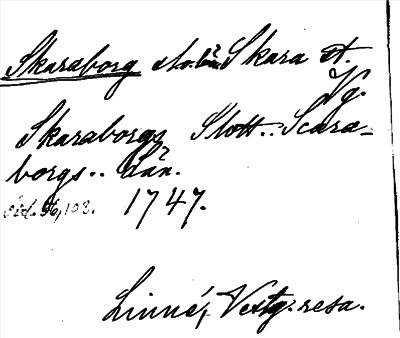 Skaraborg Skara st.
Vg.
Skaraborgs Slott.. Scara-
borgs.. Län.
sid. 96, 103. 1747.
Linné, Västg. resa.